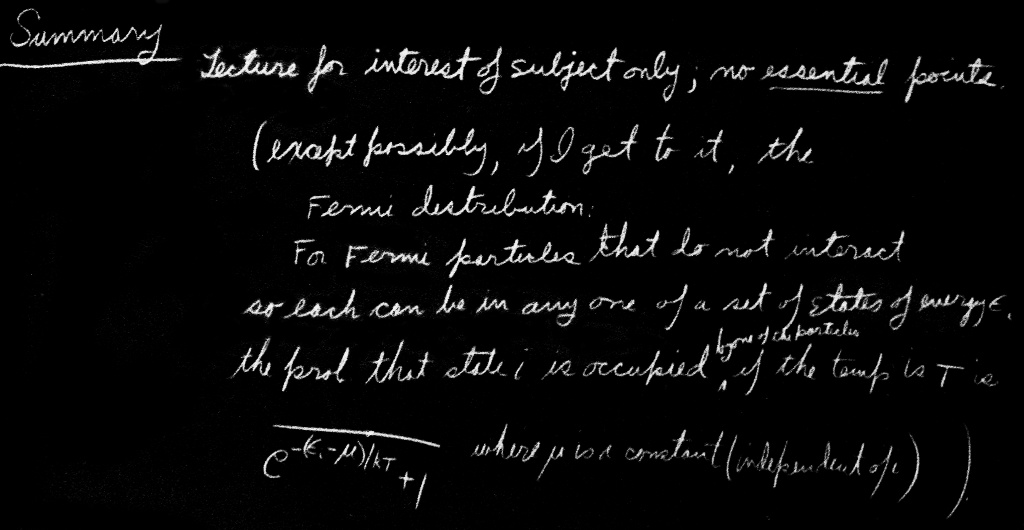 Summary
Lecture for interest of subject only; no essential points.
(except possibly, if I get to it, the
Fermi distribution:
For Fermi particles that do not interact
so each can be in any one of a set of states of energy ϵᵢ
by one of the particles
the prob that state i is occupied ‸ if the temp is T is
e^-(ϵᵢ-μ)/kT +1 where μ is a constant (independent of i) )